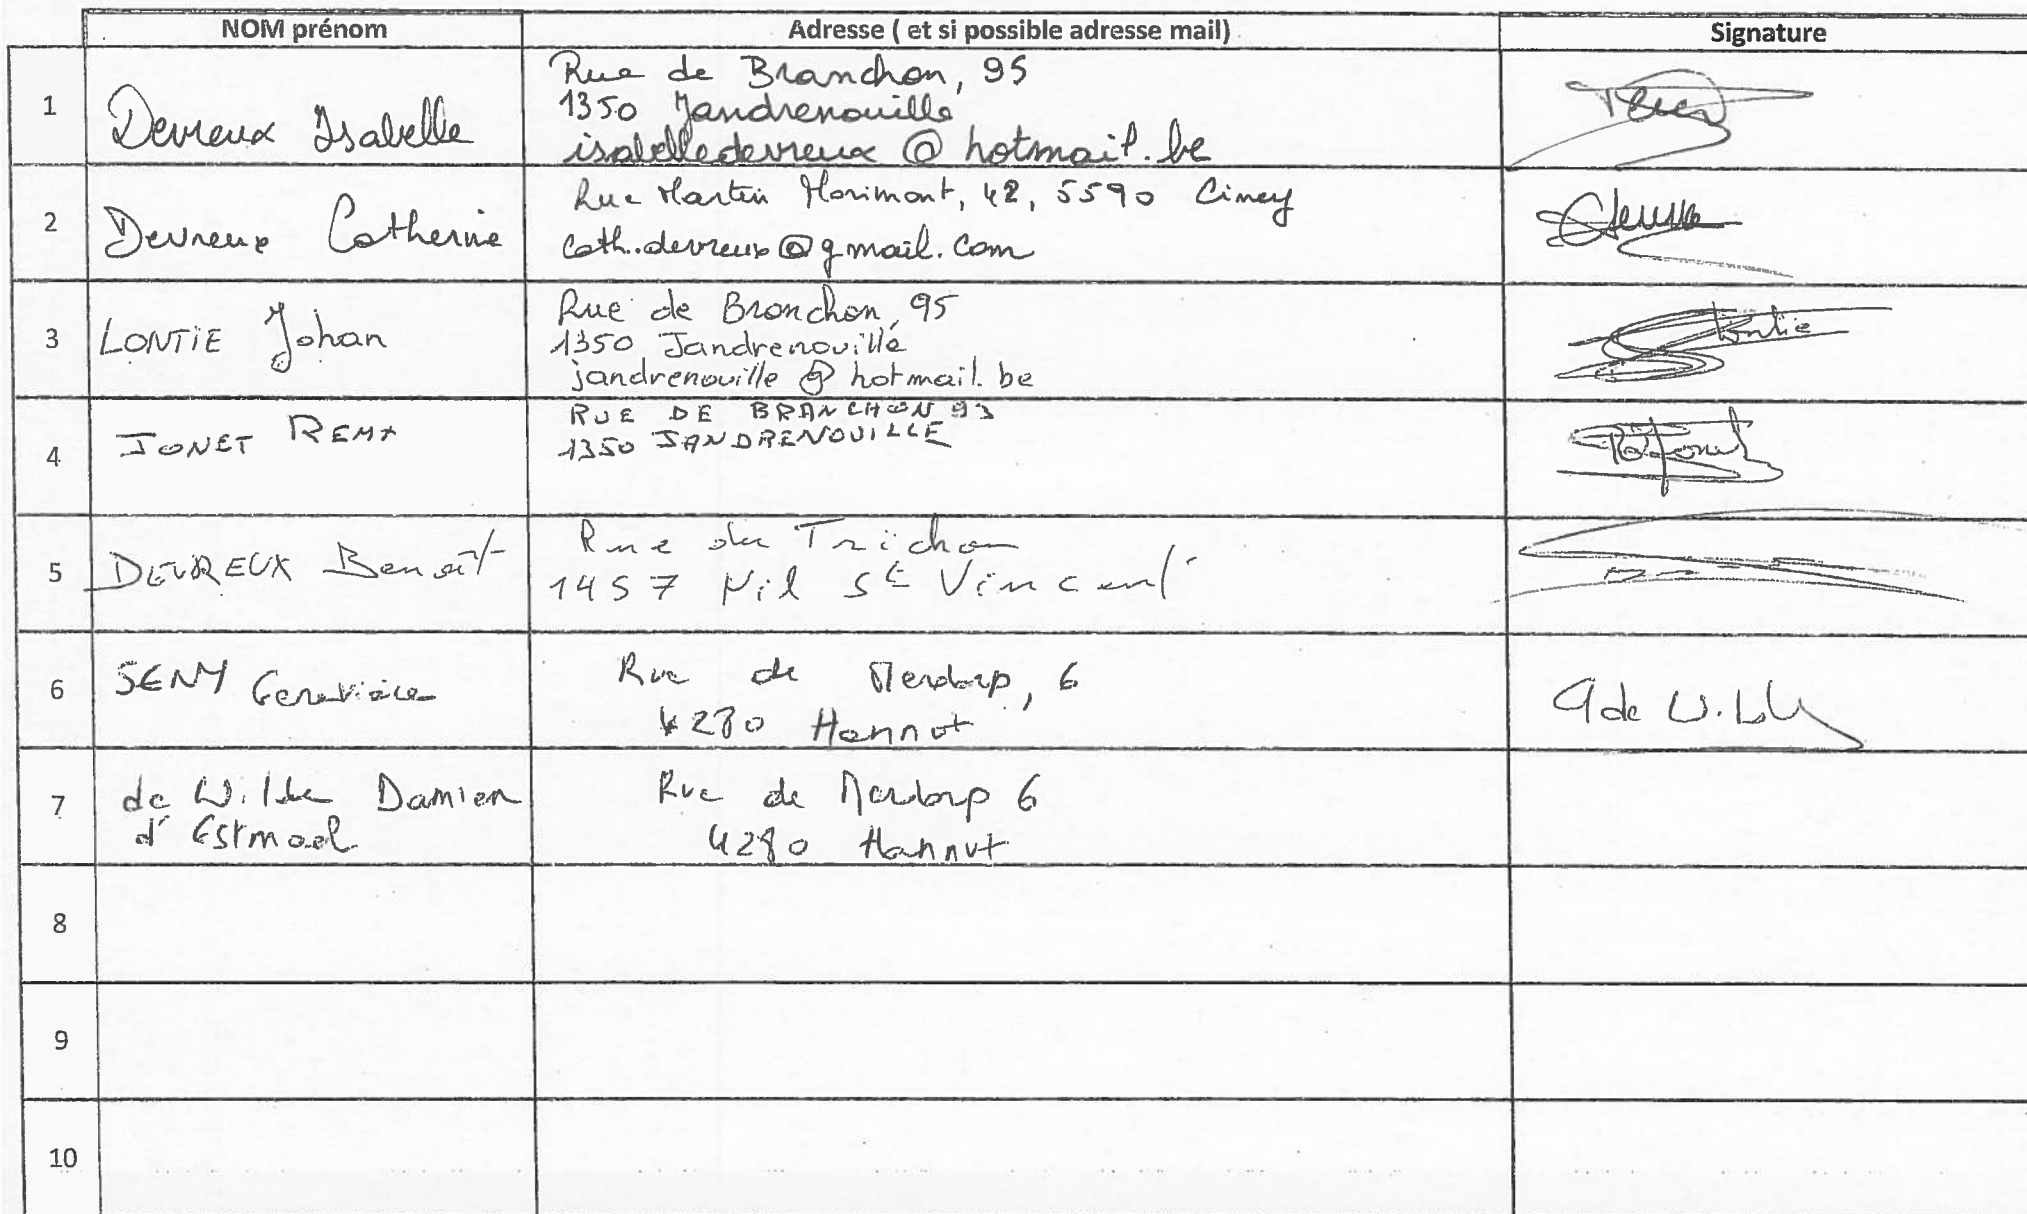 NOM prénom Adresse ( et si possible adresse mail) Signature
1 Devreux Isabelle
Rue de Branchon, 95
1350 Jandrenouille
isabelledevreux @ hotmail.be
2 Devreux Catherine
Rue Martin Morimont, 42, 5590 Ciney
cath.devreux@gmail.com
3 LONTIE Johan
Rue de Branchon, 95
1350 Jandrenouille
jandrenouille @ hotmail.be
Lontie
4 JONET
RUE DE BRANCHON 93
1350 JANDRENOUILLE
5 DEVREUX Benoît
Rue du Trichon
1457 Nil St Vincent
6 SENY Geneviève
Rue de Merdorp, 6
4280 Hannut
7 de Wilde Damien
d'Estmael
Rue de Merdorp 6
4280 Hannut
8
9
10